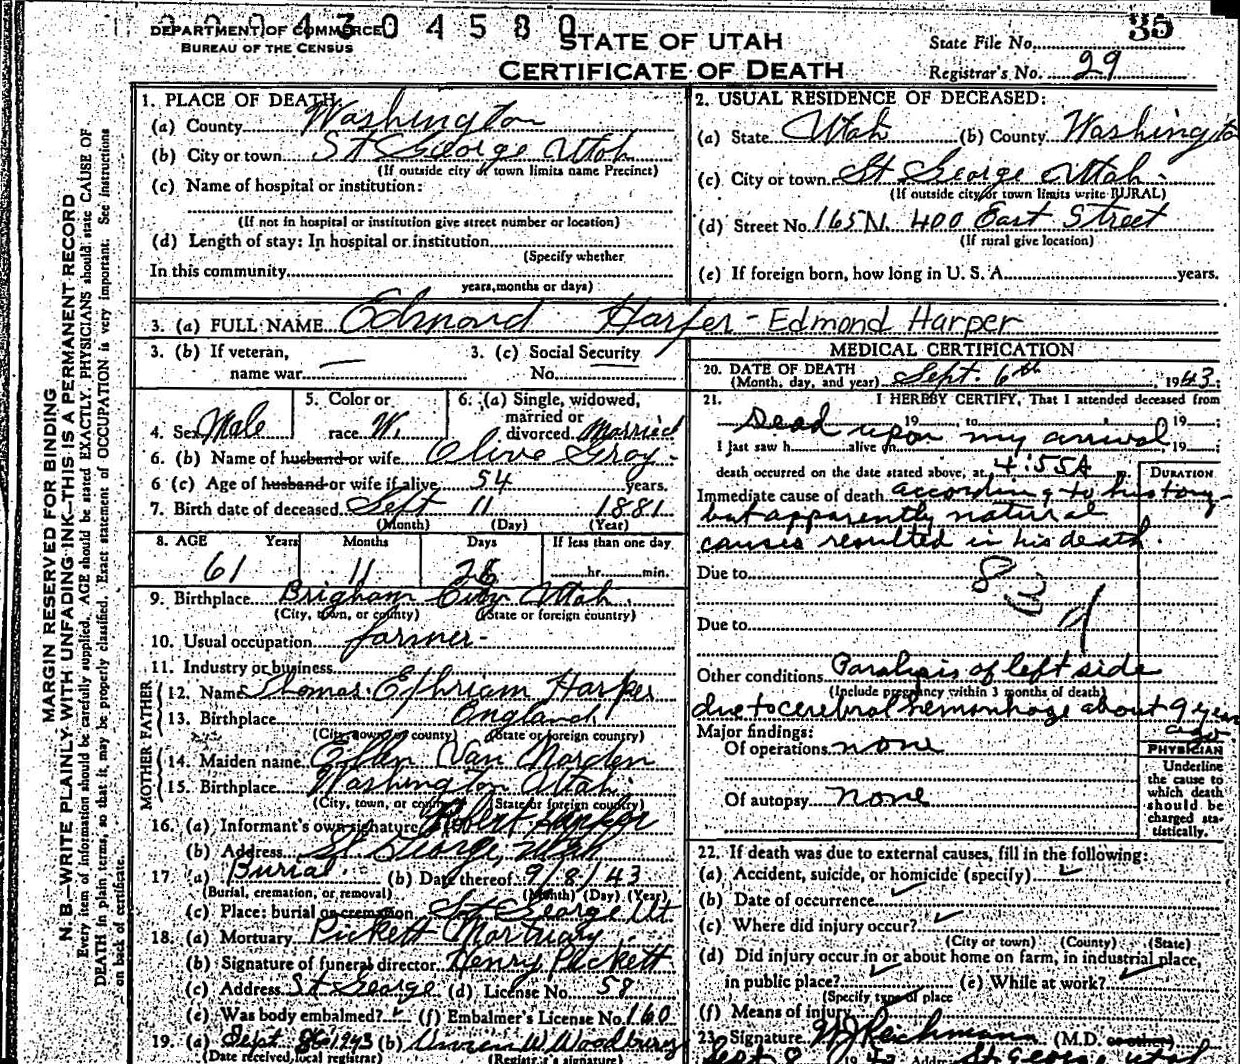 2 0 0 4 3 0 4 5 8 0
35
DEPARTMENT OF COMMERCE
BUREAU OF THE CENSUS
STATE OF UTAH
CERTIFICATE OF DEATH
State File No.
Registrar's No. 29
MARGIN RESERVED FOR BINDING
N. B.—WRITE PLAINLY WITH UNFADING INK—THIS IS A PERMANENT RECORD
Every item of information should be carefully supplied. AGE should be stated EXACTLY. PHYSICIANS should state CAUSE OF
DEATH in plain terms, so that it may be properly classified. Exact statement of OCCUPATION is very important. See instructions
on back of certificate.
1. PLACE OF DEATH:
(a) County Washington
(b) City or town St George Utah
(If outside city or town limits name Precinct)
(c) Name of hospital or institution:
(If not in hospital or institution give street number or location)
(d) Length of stay: In hospital or institution
(Specify whether
In this community
years, months or days)
2. USUAL RESIDENCE OF DECEASED:
(a) State Utah (b) County Washington
(c) City or town St George Utah.
(If outside city or town limits write RURAL)
(d) Street No. 165 N. 400 East Street
(If rural give location)
(e) If foreign born, how long in U. S. A. years.
3. (a) FULL NAME Edmond Harper - Edmond Harper
3. (b) If veteran,
name war
3. (c) Social Security
No.
4. Sex Male
5. Color or
race W.
6. (a) Single, widowed,
married or
divorced Married
6. (b) Name of husband or wife Olive Gray
6 (c) Age of husband or wife if alive 54 years.
7. Birth date of deceased Sept 11 1881
(Month) (Day) (Year)
8. AGE Years Months Days If less than one day
61 11 26 hr. min.
9. Birthplace Brigham City Utah.
(City, town, or county) (State or foreign country)
10. Usual occupation farmer-
11. Industry or business
FATHER
12. Name Thomas Ephriam Harper
13. Birthplace England
(City, town or county) (State or foreign country)
MOTHER
14. Maiden name Ellen Van Norden
15. Birthplace Washington Utah
(City, town, or county) (State or foreign country)
16. (a) Informant's own signature Robert Harper
(b) Address St George, Utah
17 (a) Burial (b) Date thereof 9/8/43
(Burial, cremation, or removal) (Month) (Day) (Year)
(c) Place: burial or cremation St George Ut.
18. (a) Mortuary Pickett Mortuary
(b) Signature of funeral director Henry Pickett
(c) Address St George (d) License No. 58
(e) Was body embalmed? (f) Embalmer's License No. 160
19. (a) Sept 8th 1943 (b) W. Woodbury
(Date received local registrar) (Registrar's signature)
MEDICAL CERTIFICATION
20. DATE OF DEATH
(Month, day, and year) Sept. 6th, 1943
21. I HEREBY CERTIFY, That I attended deceased from
19 , to 19 ;
Dead upon my arrival
I last saw h alive on 19 ;
death occurred on the date stated above, at 4:55A
DURATION
Immediate cause of death according to history-
but apparently natural
causes resulted in his death.
Due to
Due to
Other conditions Paralisis of left side
(Include pregnancy within 3 months of death)
due to cerebral hemorrhage about 9 years
ago.
Major findings:
Of operations none
Of autopsy none
PHYSICIAN
Underline
the cause to
which death
should be
charged sta-
tistically.
22. If death was due to external causes, fill in the following:
(a) Accident, suicide, or homicide (specify)
(b) Date of occurrence
(c) Where did injury occur?
(City or town) (County) (State)
(d) Did injury occur in or about home on farm, in industrial place,
in public place? (e) While at work?
(Specify type of place
(f) Means of injury
23. Signature Reichmann (M.D. or other)
Sept 8